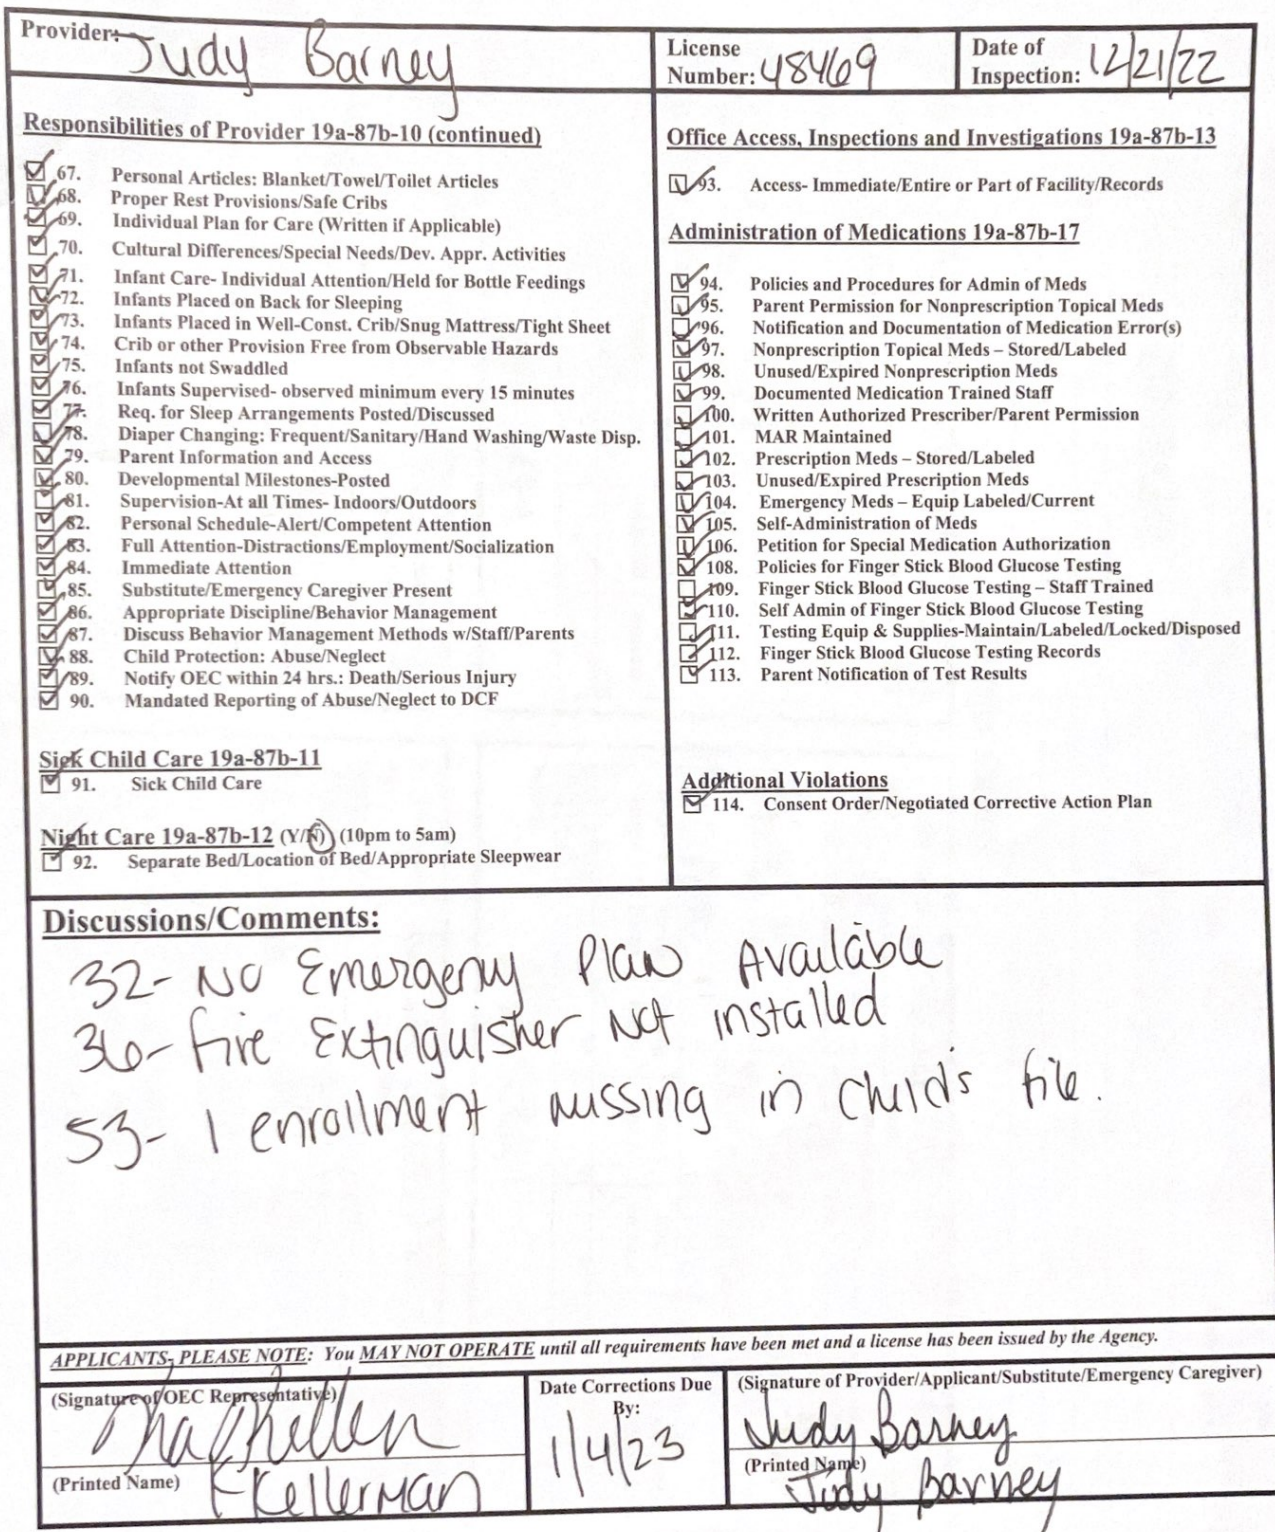 Provider: Judy Barney
License Number: 48469
Date of Inspection: 12/21/22
Responsibilities of Provider 19a-87b-10 (continued)
67. Personal Articles: Blanket/Towel/Toilet Articles
68. Proper Rest Provisions/Safe Cribs
69. Individual Plan for Care (Written if Applicable)
70. Cultural Differences/Special Needs/Dev. Appr. Activities
71. Infant Care- Individual Attention/Held for Bottle Feedings
72. Infants Placed on Back for Sleeping
73. Infants Placed in Well-Const. Crib/Snug Mattress/Tight Sheet
74. Crib or other Provision Free from Observable Hazards
75. Infants not Swaddled
76. Infants Supervised- observed minimum every 15 minutes
77. Req. for Sleep Arrangements Posted/Discussed
78. Diaper Changing: Frequent/Sanitary/Hand Washing/Waste Disp.
79. Parent Information and Access
80. Developmental Milestones-Posted
81. Supervision-At all Times- Indoors/Outdoors
82. Personal Schedule-Alert/Competent Attention
83. Full Attention-Distractions/Employment/Socialization
84. Immediate Attention
85. Substitute/Emergency Caregiver Present
86. Appropriate Discipline/Behavior Management
87. Discuss Behavior Management Methods w/Staff/Parents
88. Child Protection: Abuse/Neglect
89. Notify OEC within 24 hrs.: Death/Serious Injury
90. Mandated Reporting of Abuse/Neglect to DCF
Sick Child Care 19a-87b-11
91. Sick Child Care
Night Care 19a-87b-12 (Y/N) (10pm to 5am)
92. Separate Bed/Location of Bed/Appropriate Sleepwear
Office Access, Inspections and Investigations 19a-87b-13
93. Access- Immediate/Entire or Part of Facility/Records
Administration of Medications 19a-87b-17
94. Policies and Procedures for Admin of Meds
95. Parent Permission for Nonprescription Topical Meds
96. Notification and Documentation of Medication Error(s)
97. Nonprescription Topical Meds – Stored/Labeled
98. Unused/Expired Nonprescription Meds
99. Documented Medication Trained Staff
100. Written Authorized Prescriber/Parent Permission
101. MAR Maintained
102. Prescription Meds – Stored/Labeled
103. Unused/Expired Prescription Meds
104. Emergency Meds – Equip Labeled/Current
105. Self-Administration of Meds
106. Petition for Special Medication Authorization
108. Policies for Finger Stick Blood Glucose Testing
109. Finger Stick Blood Glucose Testing – Staff Trained
110. Self Admin of Finger Stick Blood Glucose Testing
111. Testing Equip & Supplies-Maintain/Labeled/Locked/Disposed
112. Finger Stick Blood Glucose Testing Records
113. Parent Notification of Test Results
Additional Violations
114. Consent Order/Negotiated Corrective Action Plan
Discussions/Comments:
32- No Emergency Plan Available
36- Fire Extinguisher Not installed
53- 1 enrollment missing in child's file.
APPLICANTS- PLEASE NOTE: You MAY NOT OPERATE until all requirements have been met and a license has been issued by the Agency.
(Signature of OEC Representative)
(Printed Name) Kellerman
Date Corrections Due
By:
1/4/23
(Signature of Provider/Applicant/Substitute/Emergency Caregiver)
Judy Barney
(Printed Name)
Judy Barney